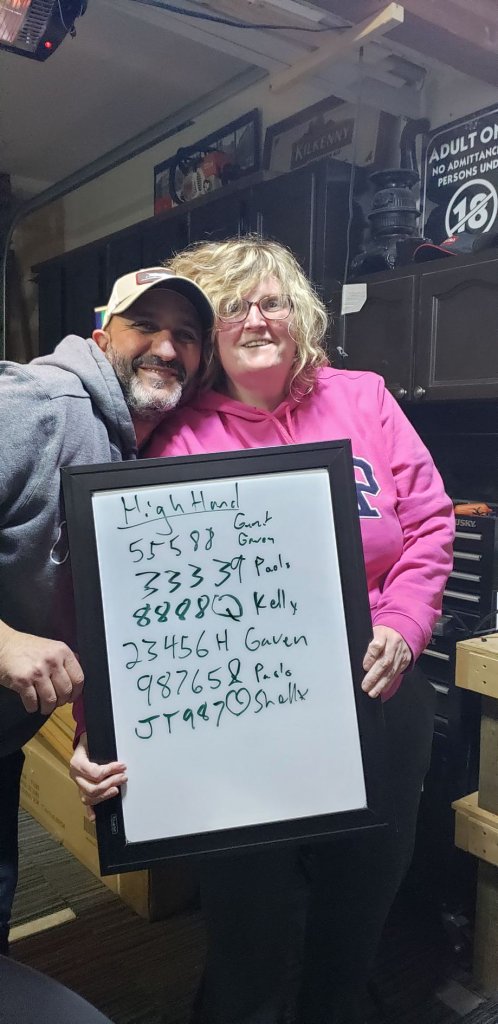 KILKENNY
ADULT ON
NO ADMITTANC
PERSONS UND
18
High Hand
55588 Gavon
33339 Paolo
8888Q Kelly
23456H Gaven
98765 Paolo
JT987♡ Shelly
HUSKY.